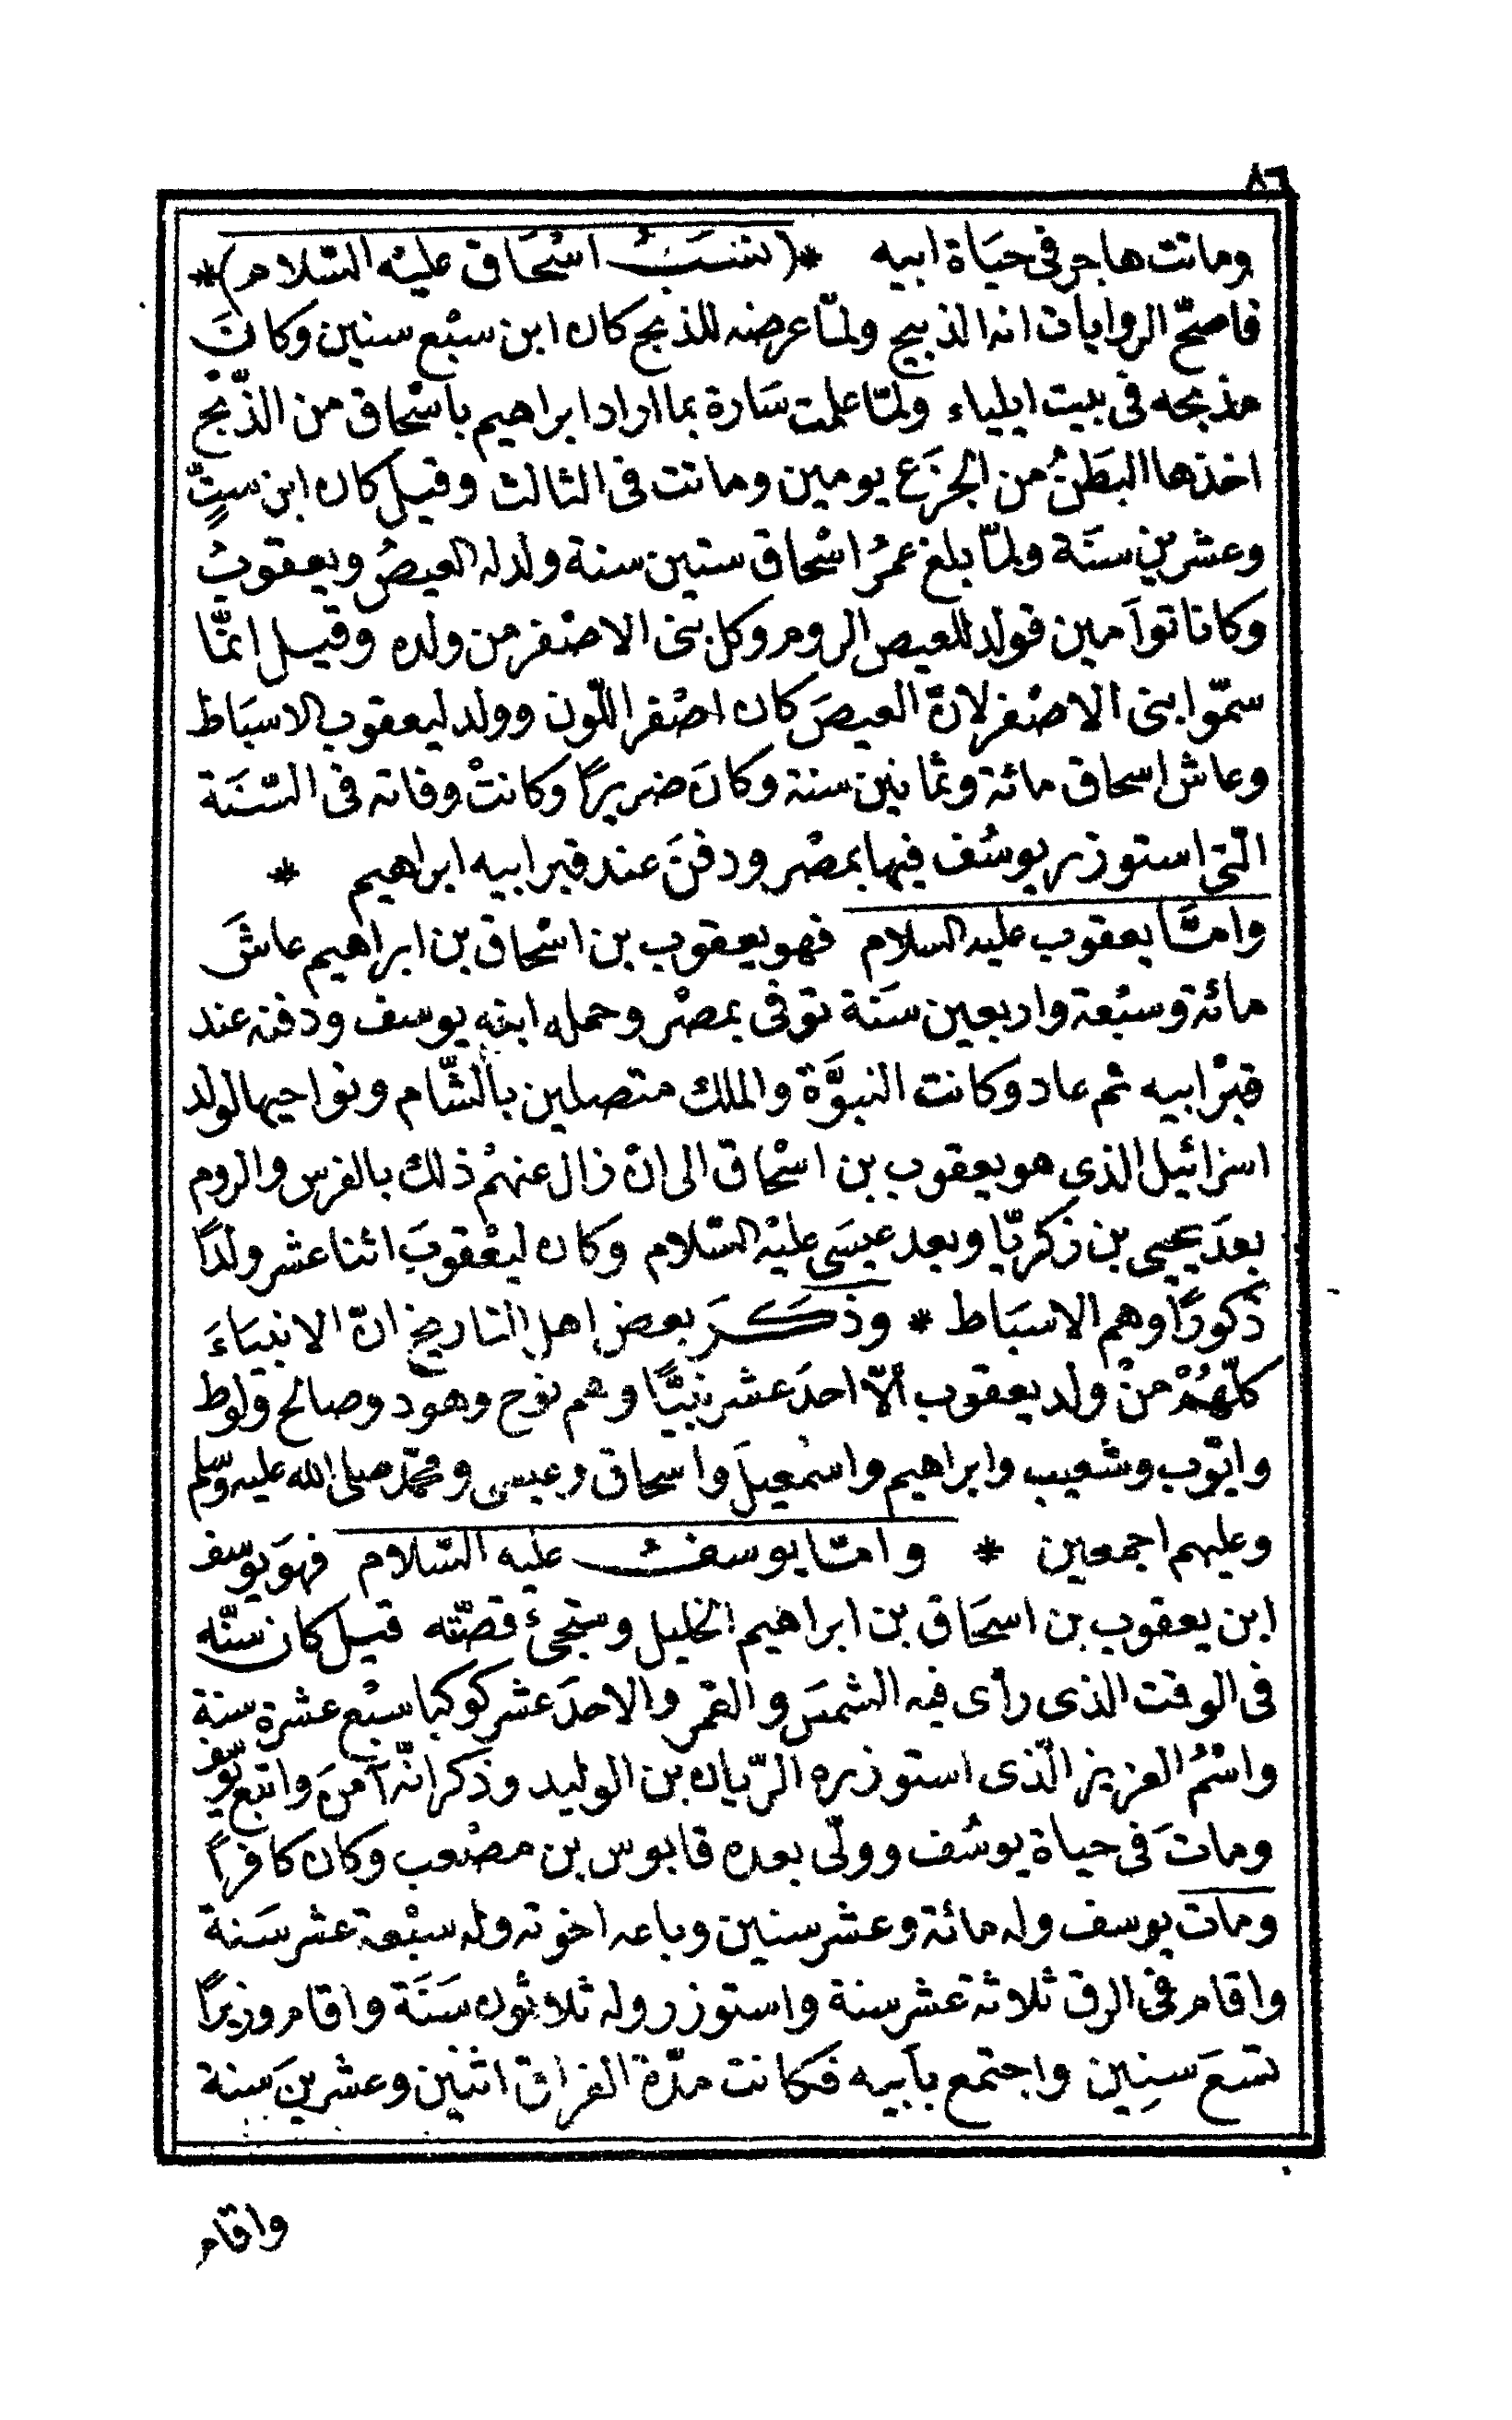 ٨٦
وماتت هاجر فى حيَاة ابيه * (نسَبُ اسْحَاق عليْه السّلام) *
فاصحّ الروايات انه الذبيح ولمّا عرضه للذبح كان ابن سبْع سنين وكانَ
مذبحه فى بيت ايلياء ولمّا علمت سَارة بما اراد ابراهيم باسْحاق من الذّبح
اخذها البَطَنُ من الجزَع يومين وماتت فى الثالث وقيل كان ابن ستٍّ
وعشرين سنَة ولمّا بلغ عمرُ اسْحاق ستين سنة ولد له العيصُ ويعقوبُ
وكانا توآمين فولد للعيص الروم وكل بنى الاصْفر من ولده وقيل انمّا
سمّوا بنى الاصْفر لانّ العيصَ كان اصْفر اللّون وولد ليعقوب الاسبَاط
وعاش اسحاق مائة وثمانين سنة وكانَ ضريرًا وكانتْ وفاته فى السّنَة
الّتى استوزر يوسُف فيها بمصْر ودفنَ عند قبر ابيه ابراهيم *
وامّا يعقوب عليه السلام فهو يعقوب بن اسْحاق بن ابراهيم عاشَ
مائة وسبْعة واربعين سَنة توفى بمصْر وحمله ابنه يوسف ودفنه عند
قبْر ابيه ثم عاد وكانت النبوَّة والملك متصلين بالشّام ونواحيها لولد
اسرائيل الذى هو يعقوب بن اسْحاق الى انْ زال عنهُم ذلك بالفرس والروم
بعدَ يحيى بن زكريّا وبعد عيسَى عليْه السّلام وكان ليعْقوبَ اثنا عشر ولدًا
ذكورًا وهم الاسبَاط * وذكَرَ بعض اهل التاريخ انّ الانبيَاءَ
كلّهُمْ منْ ولد يعقوب ألّا احدَ عشر نبيًّا وهم نوح وهود وصالح ولوط
وايّوب وشعيب وابراهيم واسْمعيلَ واسحاق وعيسى ومحمّد صلى الله عليه وسّلم
وعليهم اجمعين * وامّا يوسفُ عليه السّلام فهوَ يوسف
ابن يعقوب بن اسحَاق بن ابراهيم الخليل وستجئ قصّته قيل كان سنّه
فى الوقت الذى رأى فيه الشمسَ والقمر والاحدَ عشر كوكبا سبْع عشرة سنة
واسْمُ العزيز الّذى استوزره الرّيان بن الوليد وذكر انّه آمنَ واتبع يوسف
وماتَ فى حياة يوسُف وولّى بعده قابوس بن مصْعب وكان كافرًا
ومات يوسف وله مائة وعشر سنين وباعه اخوته وله سبْعة عشر سَنة
واقام فى الرق ثلاثة عشر سنة واستوزر وله ثلاثون سَنَة واقام وزيرًا
تسَعَ سنِين واجتمع بأبيه فكانت مدّة الفراق اثنين وعشرينَ سنة
واقام